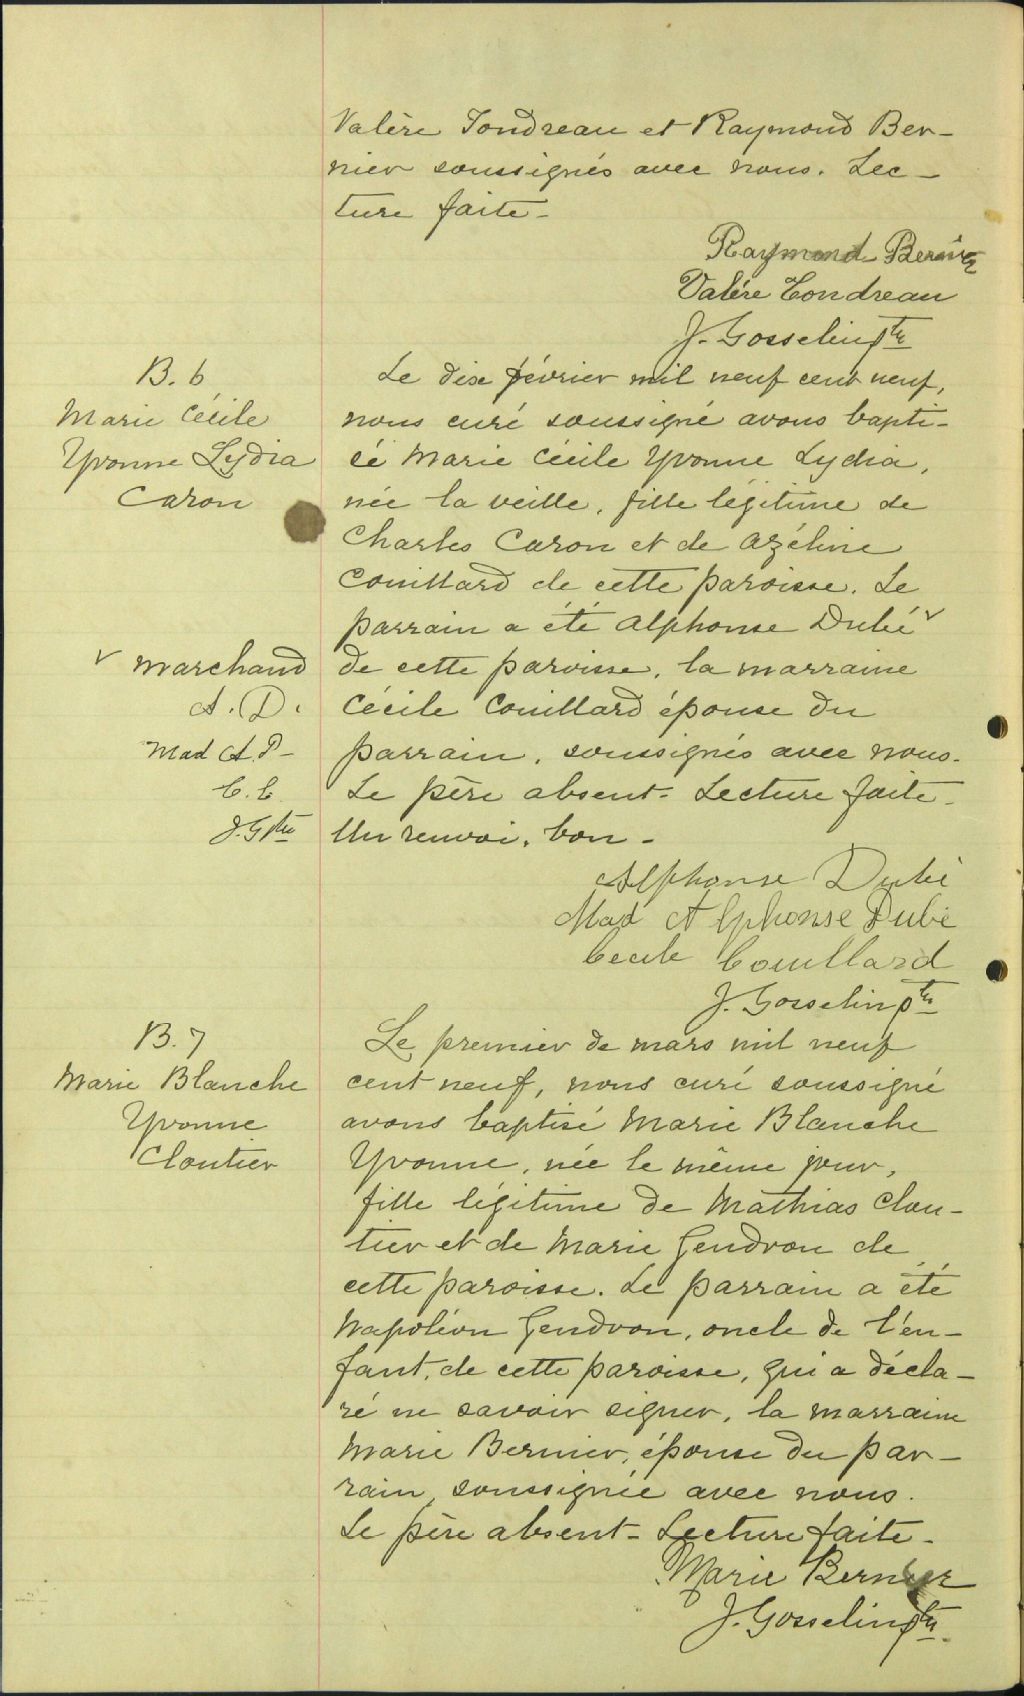 Valère Tondreau et Raymond Ber-
nier soussignés avec nous. Lec-
ture faite-
Raymond Bernier
Valére Tondreau
J. Gosselin ptre
B. 6
Marie Cécile
Yvonne Lydia
Caron
Le dix février mil neuf cent neuf,
nous curé soussigné avons bapti-
sé Marie Cécile Yvonne Lydia,
née la veille, fille légitime de
Charles Caron et de Azéline
Couillard de cette paroisse. Le
parrain a été Alphonse Dubé v
v marchand
A. D.
Mad A. D-
C. C.
J. G ptre
de cette paroisse, la marraine
Cécile Couillard épouse du
parrain, soussignés avec nous.
Le père absent- Lecture faite-
Un renvoi, bon-
Alphonse Dubé
Mad Alphonse Dubé
Cecile Couillard
J. Gosselin ptre
B. 7
Marie Blanche
Yvonne
Cloutier
Le premier de mars mil neuf
cent neuf, nous curé soussigné
avons baptisé Marie Blanche
Yvonne, née le même jour,
fille légitime de Mathias Clou-
tier et de Marie Gendron de
cette paroisse. Le parrain a été
Napoléon Gendron, oncle de l'en-
fant, de cette paroisse, qui a décla-
ré ne savoir signer, la marraine
Marie Bernier, épouse du par-
rain, soussignée avec nous.
Le père absent- Lecture faite-
Marie Bernier
J. Gosselin ptre